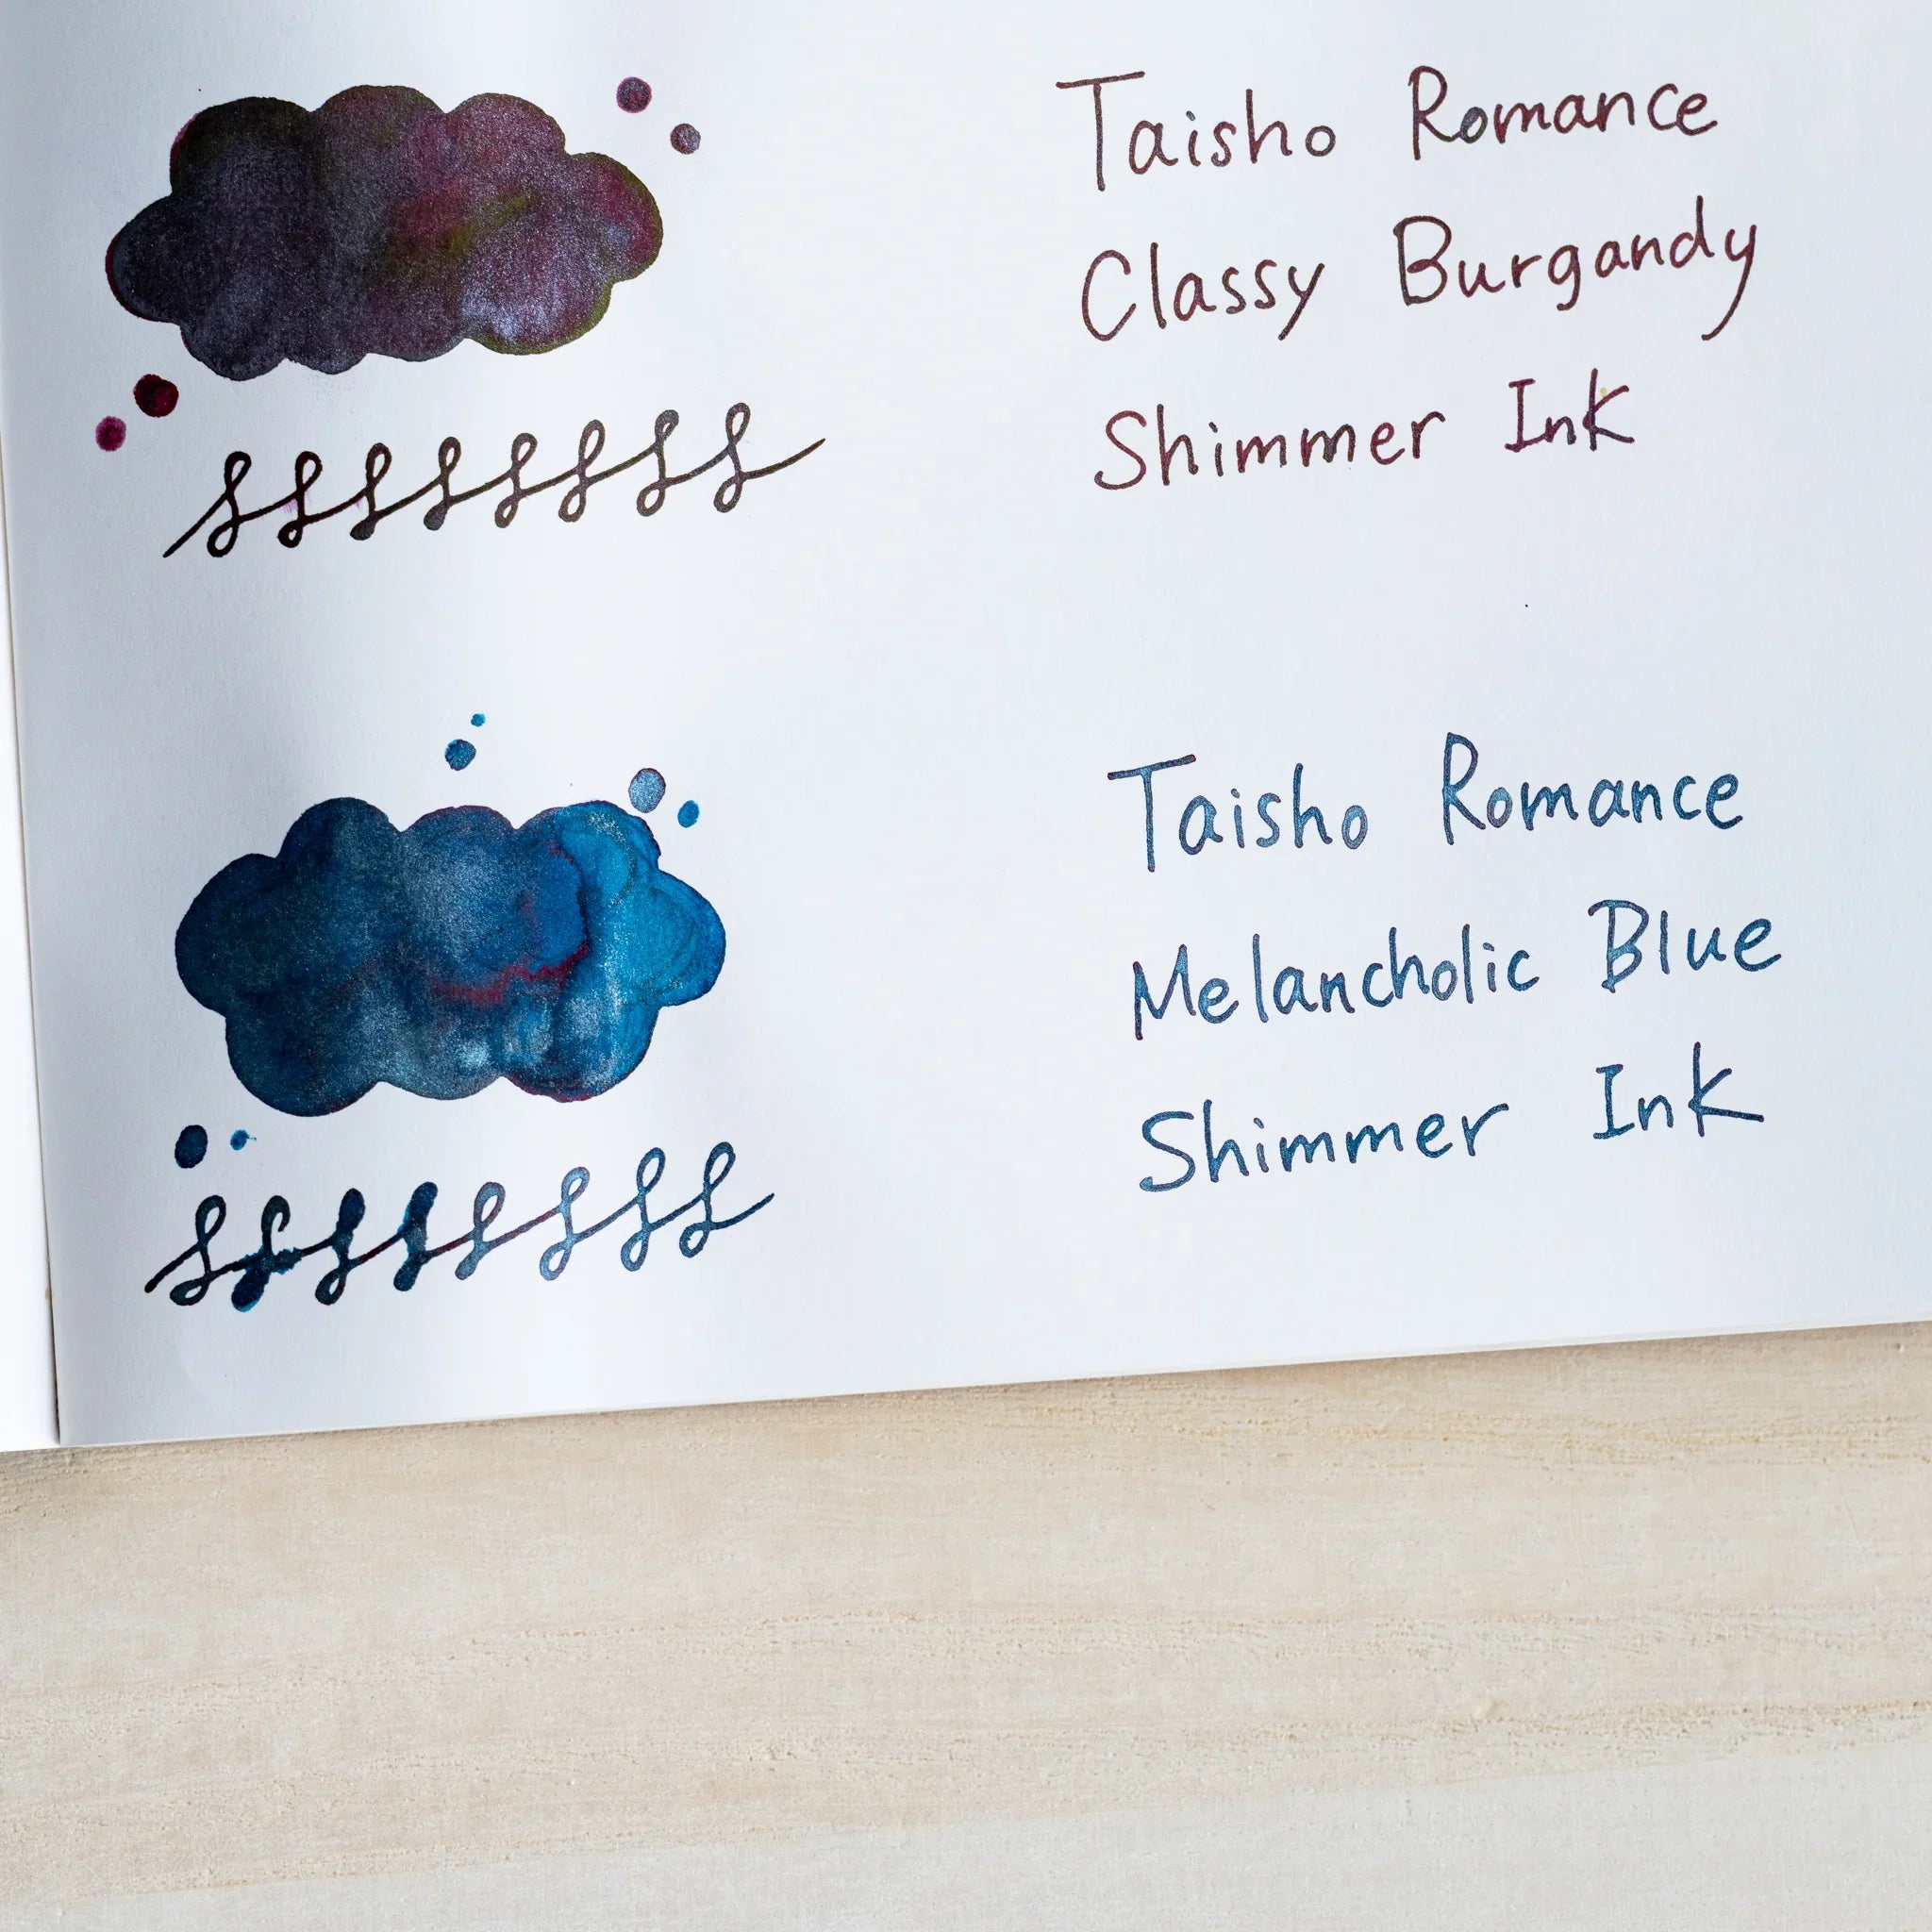 Taisho Romance
Classy Burgandy
Shimmer Ink
Taisho Romance
Melancholic Blue
Shimmer Ink